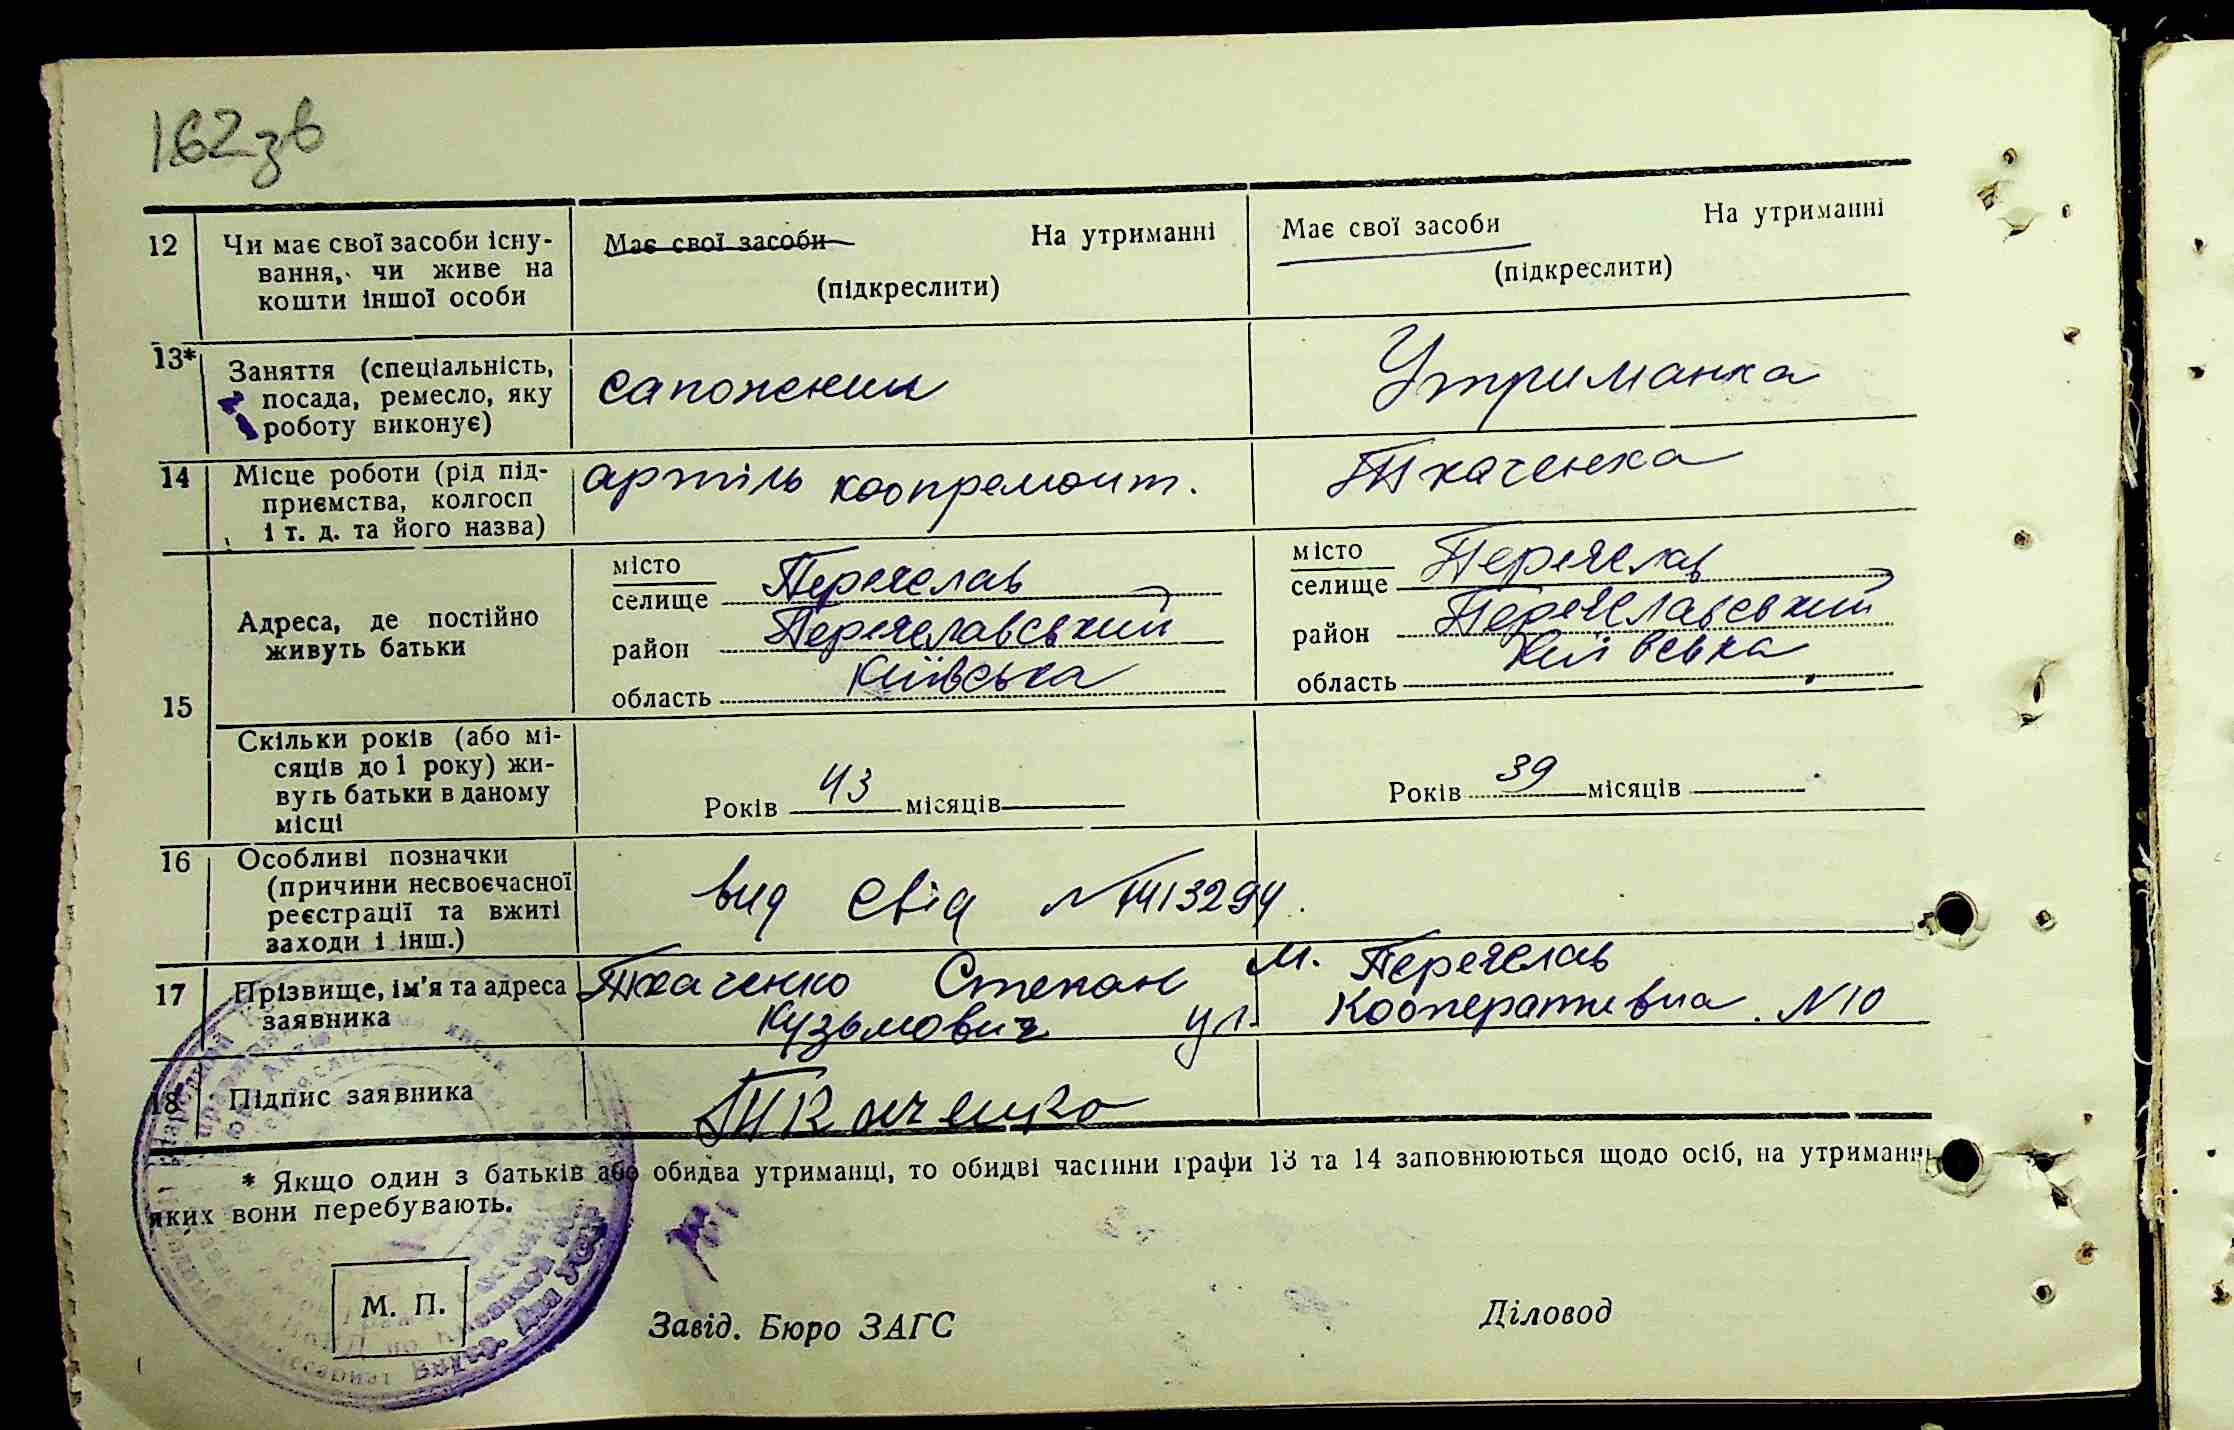 162зв
12 Чи має свої засоби існу-
вання, чи живе на
кошти іншої особи
Має свої засоби На утриманні
(підкреслити)
Має свої засоби На утриманні
(підкреслити)
13* Заняття (спеціальність,
посада, ремесло, яку
роботу виконує)
сапожник
Утриманка
14 Місце роботи (рід під-
приємства, колгосп
і т. д. та його назва)
артіль коопремонт.
Ткаченка
15
Адреса, де постійно
живуть батьки
місто
селище Переяслав
район Переяславський
область Київська
місто
селище Переяслав
район Переяславський
область Київська
Скільки років (або мі-
сяців до 1 року) жи-
вуть батьки в даному
місці
Років 43 місяців
Років 39 місяців
16 Особливі позначки
(причини несвоєчасної
реєстрації та вжиті
заходи і інш.)
вид свід №
17 Прізвище, ім'я та адреса
заявника
Ткаченко Степан м. Переяслав
Кузьмович ул. Кооперативна. №10
18 Підпис заявника
Ткаченко
* Якщо один з батьків або обидва утриманці, то обидві частини графи 13 та 14 заповнюються щодо осіб, на утриманні
яких вони перебувають.
М. П.
Завід. Бюро ЗАГС
Діловод